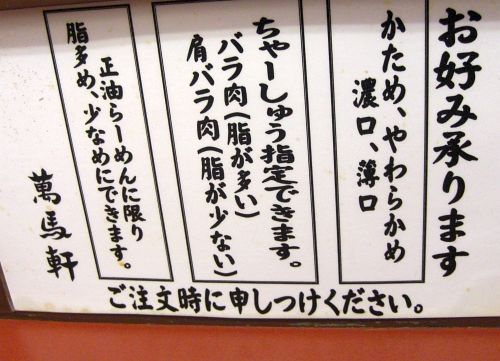 お好み承ります
かため、やわらかめ
濃口、薄口
ちゃーしゅう指定できます。
バラ肉(脂が多い)
肩バラ肉(脂が少ない)
正油らーめんに限り
脂多め、少なめにできます。
萬馬軒
ご注文時に申しつけください。